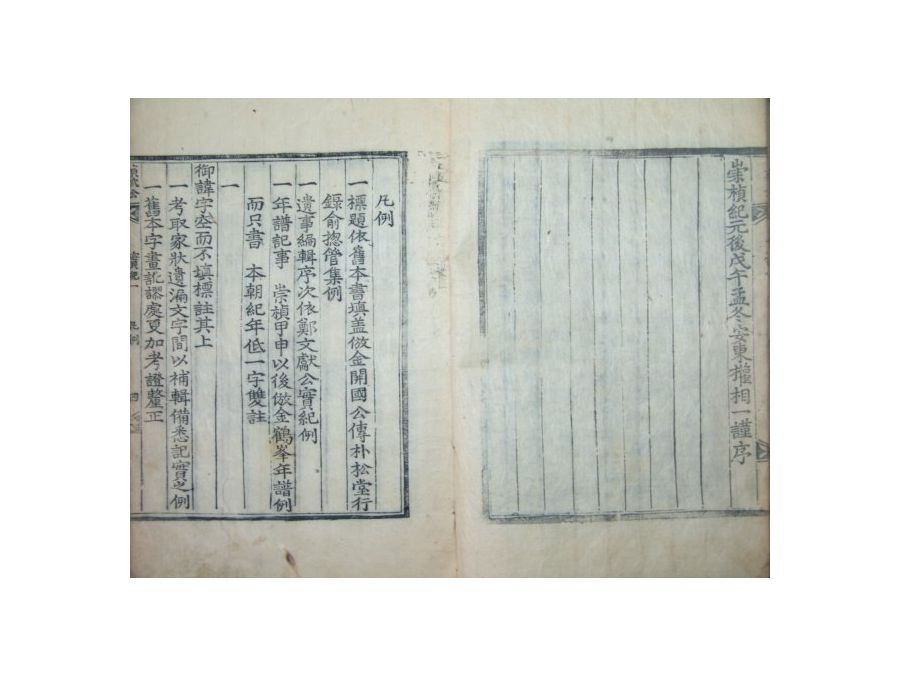 崇禎紀元後戊午孟冬安東權相一謹序
凡例
一標題依舊本書塡盖倣金開國公傳朴松堂行
錄俞摠管集例
一遺事編輯序次依鄭文獻公實紀例
一年譜記事 崇禎甲申以後倣金鶴峯年譜例
而只書 本朝紀年低一字雙註
一
御諱字空而不塡標註其上
一考取家狀遺漏文字間以補輯備悉記實之例
一舊本字畫訛謬處更加考證釐正
凡例